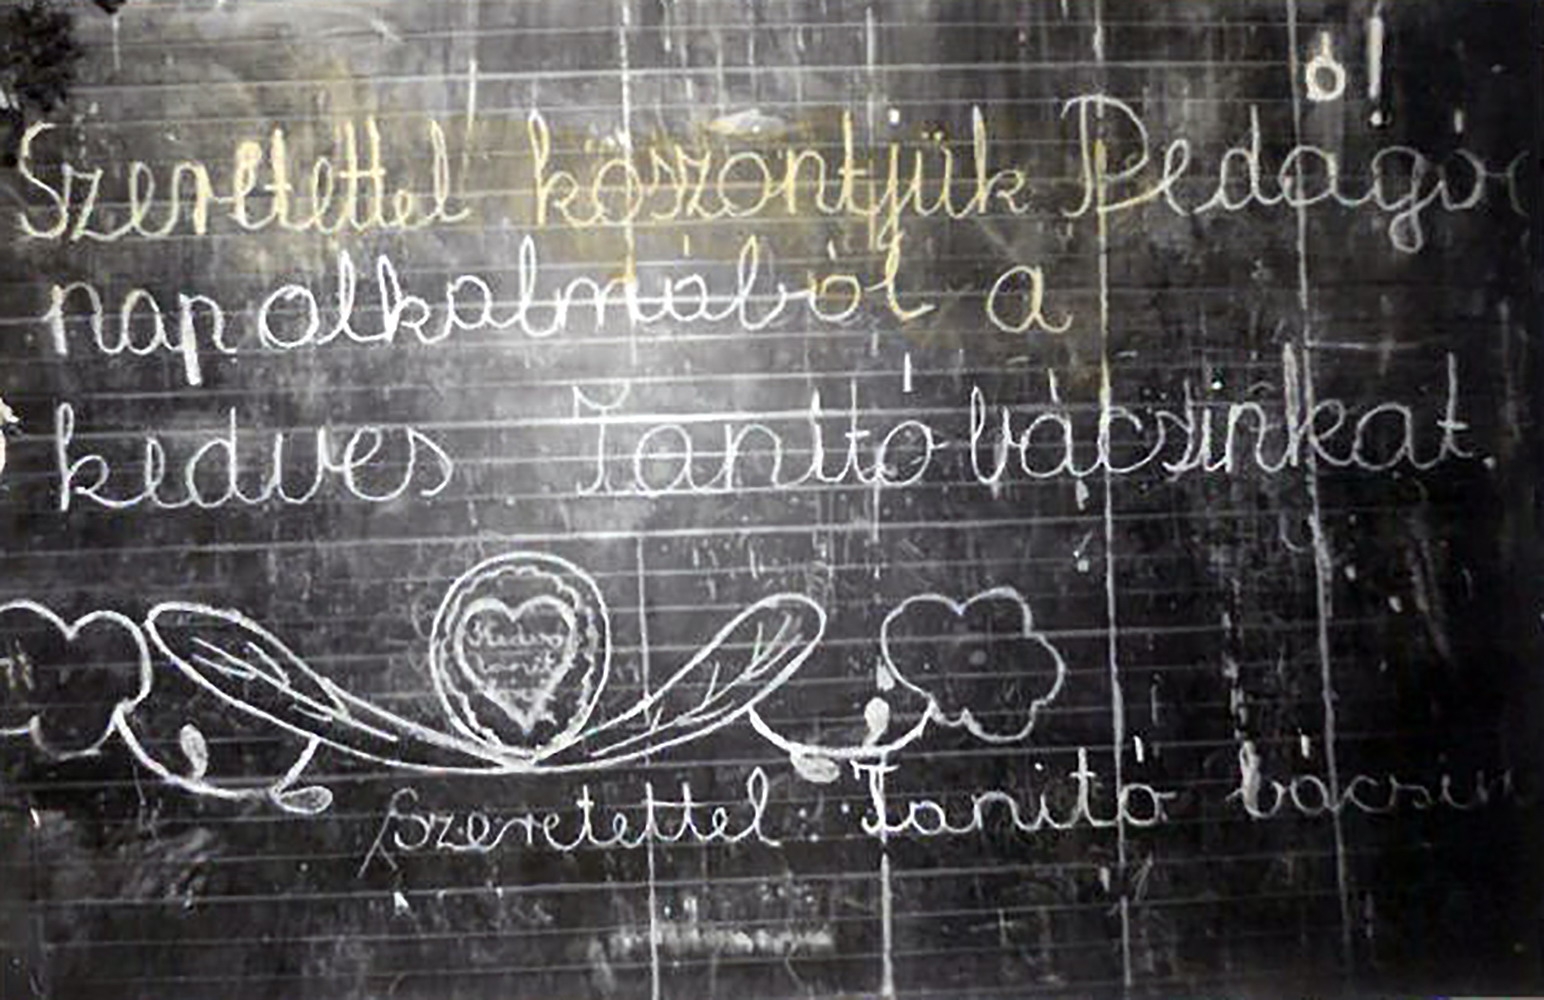 ól
Szeretettel köszöntjük Pedagó
nap alkalmából a
kedves Tanító bácsinkat.
Kedves
tanító
Szeretettel: Tanító bácsin